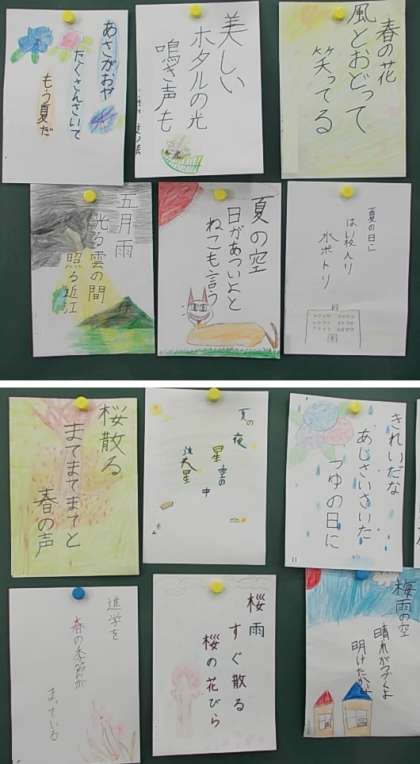 春の花
風とおどって
笑ってる
美しい
ホタルの光
鳴き声も
あさがおや
たくさんさいて
もう夏だ
夏の日に
水ポトリ
夏の空
日があついよと
ねこも言う
五月雨
光る雲の間
照る近江
きれいだな
あじさいさいた
つゆの日に
夏の夜
星雲の
中
桜散る
まてまてまてと
春の声
梅雨の空
晴れがつづくよ
明けたかな
桜雨
すぐ散る
桜の花びら
進学を
春の季節が
まっている